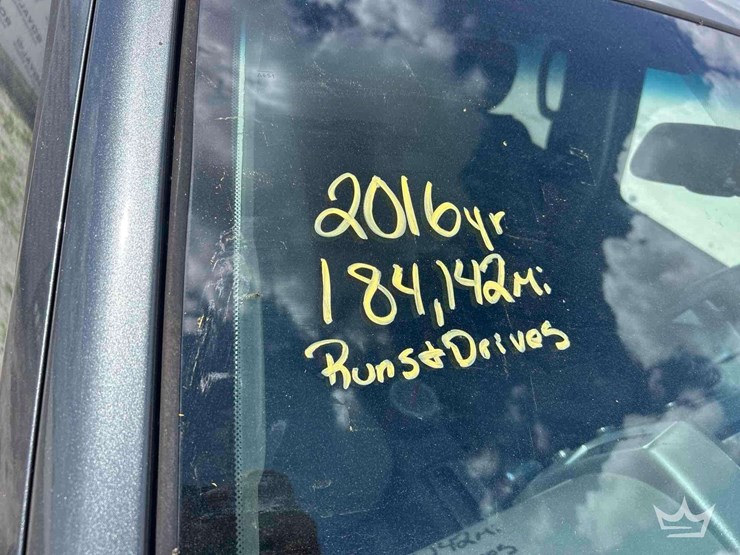 2016yr
184,142Mi
Runs & Drives